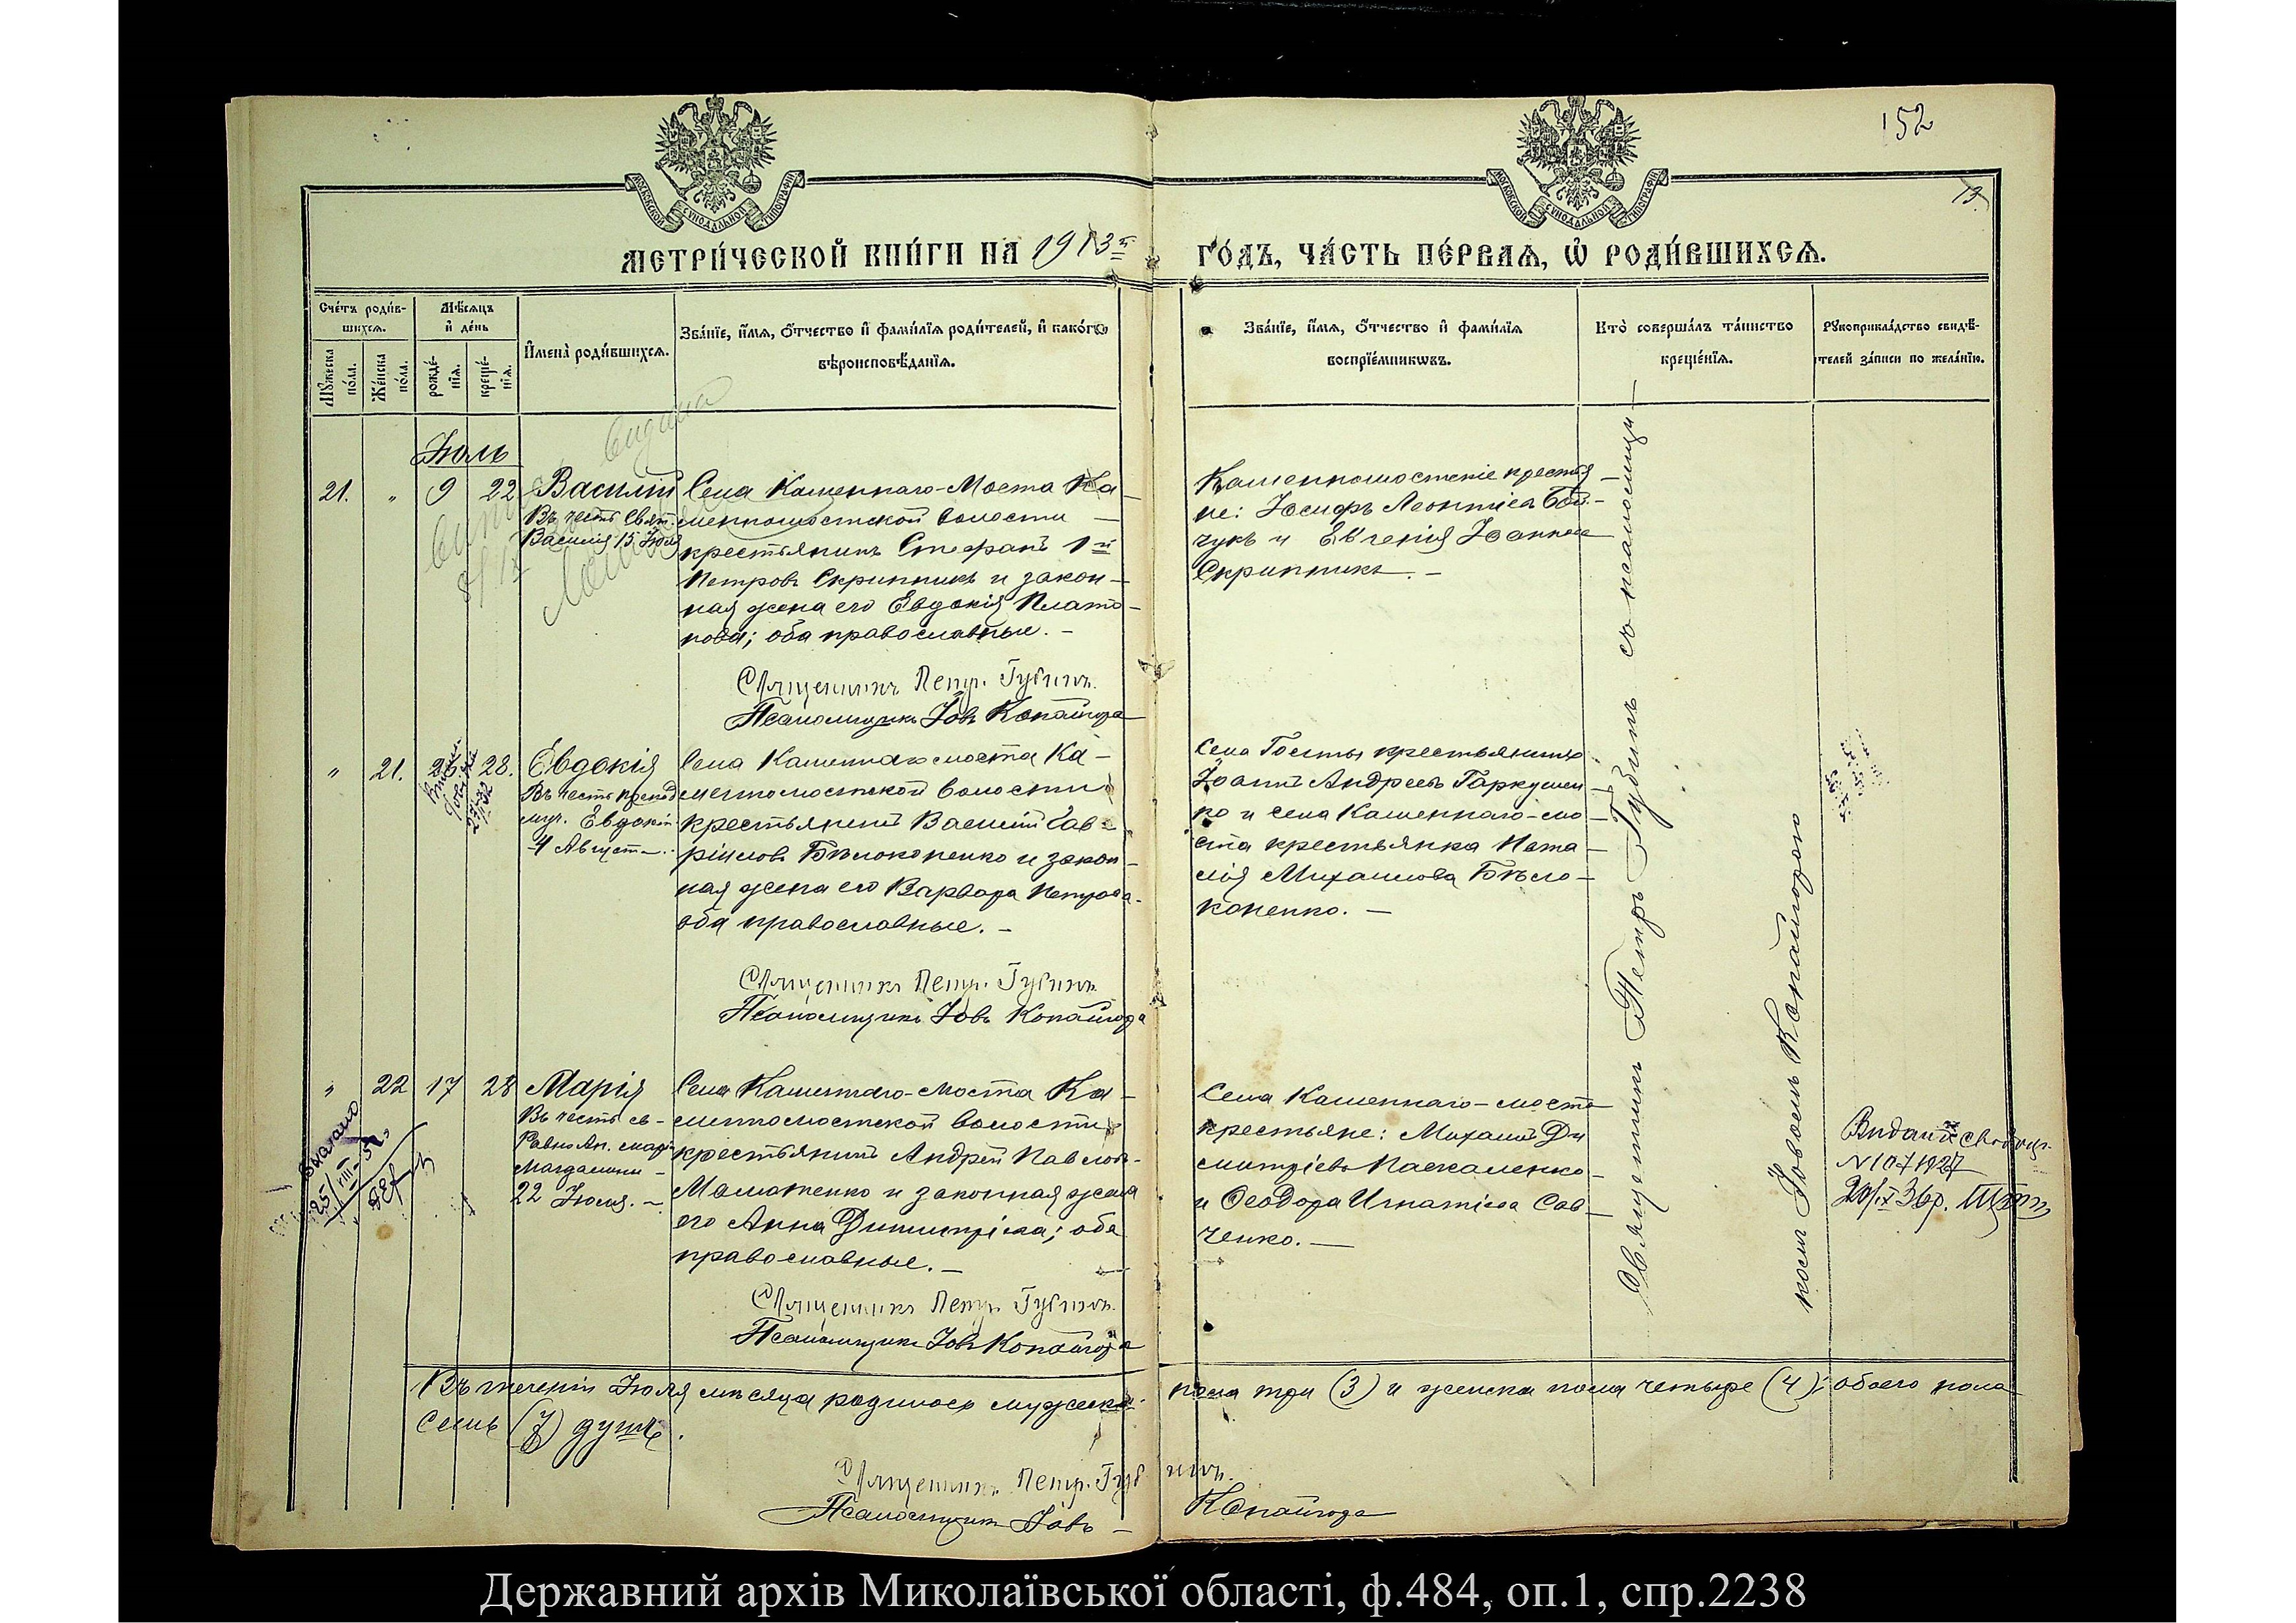 152
13
МОСКОВСКОЙ СѴНОДАЛЬНОЙ ТИПОГРАФІИ
МОСКОВСКОЙ СѴНОДАЛЬНОЙ ТИПОГРАФІИ
МЕТРИ́ЧЕСКОЙ КНИ́ГИ НА 1913й ГО́ДЪ, ЧА́СТЬ ПЕ́РВАѦ, Ѡ҆ РОДИ́ВШИХСѦ.
Сче́тъ роди́в-
шихсѧ.
Мꙋ́жеска по́ла.
Же́нска по́ла.
Мѣ́сѧцъ и҆ де́нь
рожде́-
нїѧ.
креще́-
нїѧ.
И҆мена̀ роди́вшихсѧ.
Зва́нїе, и҆́мѧ, ѻ҆́тчество и҆ фами́лїѧ роди́телей, и҆ како́гѡ
вѣроисповѣ́данїѧ.
Зва́нїе, и҆́мѧ, ѻ҆́тчество и҆ фами́лїѧ
воспрїе́мникѡвъ.
Кто̀ соверша́лъ та́инство
креще́нїѧ.
Рꙋкоприкла́дство свидѣ́-
телей за́писи по жела́нїю.
Июль
21. " 9 22 Василій
Въ честь Свят.
Василія 15 Июля
Села Каменнаго-Моста Ка-
менномостской волости
крестьянинъ Стефанъ 1й
Петровъ Скрипникъ и закон-
ная жена его Евдокія Плато-
нова; оба православные. -
Священникъ Петръ Губинъ.
Псаломщикъ Іовъ Копайгода
Каменномостскіе крестья-
не: Іосифъ Леонтіевъ Бой-
чукъ и Евгенія Іоаннова
Скрипникъ. -
" 21. 28. Евдокія
Въ честь препод
муч. Евдокіи
4 Августа.
Села Каменнаго моста Ка-
менномостской волости
крестьянинъ Василій Гав-
ріиловъ Бѣлоконенко и закон-
ная жена его Варвара Петрова
оба православные. -
Священникъ Петръ Губинъ.
Псаломщикъ Іовъ Копайгода
Села крестьянинъ
Іоаннъ Андреевъ Гаркушен-
ко и села Каменнаго-мо-
ста крестьянка Ната-
лія Михаилова Бѣло-
коненко. -
" 22 17 28 Марія
Въ честь св-
РавноАп. Маріи
Магдалины -
22 Июля. -
Села Каменнаго-моста Ка-
менномостской волости
крестьянинъ Андрей Павловъ
и законная жена
его Анна Димитріева; оба
православные. -
Священникъ Петръ Губинъ.
Псаломщикъ Іовъ Копайгода
Села Каменнаго-моста
крестьяне: Михаилъ Ди-
митріевъ Паскаленко
и Ѳеодора Игнатіева Сав-
ченко. -
Священникъ Петръ Губинъ съ псаломщи-
комъ Іовомъ Копайгодою
Въ теченіи Июля мѣсяца родилось мужеска пола три (3) и женска пола четыре (4); обоего пола
семь (7) душъ.
Священникъ Петръ Губинъ.
Псаломщикъ Іовъ - Копайгода
Державний архів Миколаївської області, ф.484, оп.1, спр.2238